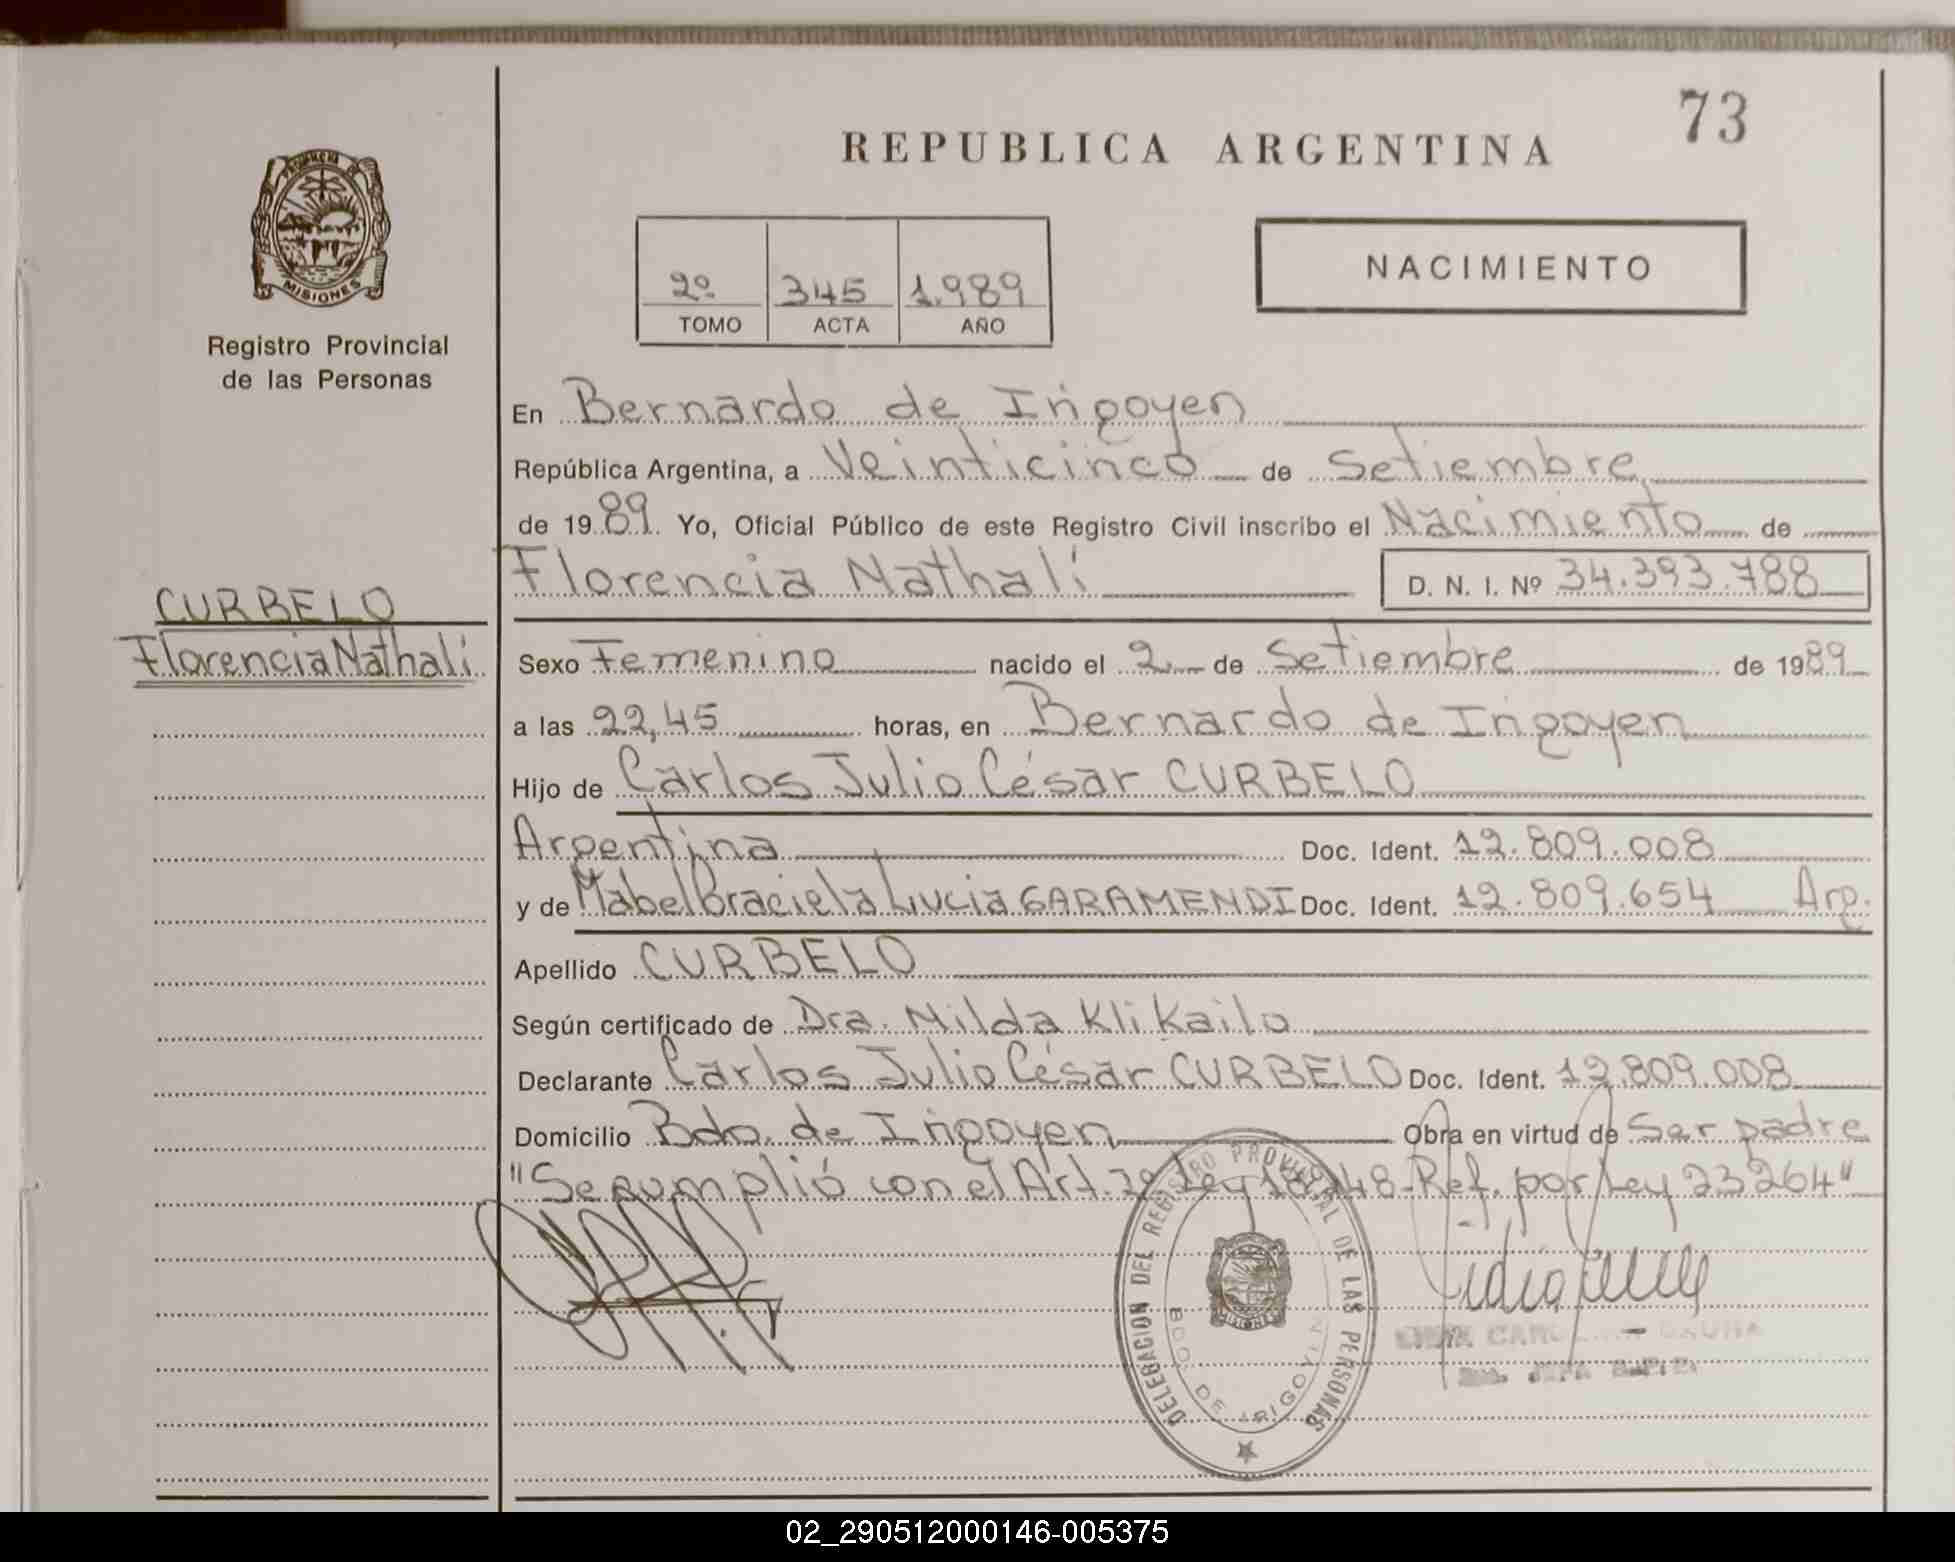 73
REPUBLICA ARGENTINA
PROVINCIA DE
MISIONES
Registro Provincial
de las Personas
2º 345 1.989
TOMO ACTA AÑO
NACIMIENTO
En Bernardo de Irigoyen
República Argentina, a Veinticinco de Setiembre
de 1989. Yo, Oficial Público de este Registro Civil inscribo el Nacimiento de
Florencia Nathalí D. N. I. Nº 34.393.788
CURBELO
Florencia Nathalí
Sexo Femenino nacido el 2 de Setiembre de 1989
a las 22,45 horas, en Bernardo de Irigoyen
Hijo de Carlos Julio César CURBELO
Argentina Doc. Ident. 12.809.008
y de Mabel Graciela Lucia GARAMENDI Doc. Ident. 12.809.654 Arg.
Apellido CURBELO
Según certificado de Dra. Nilda Klikailo
Declarante Carlos Julio César CURBELO Doc. Ident. 12.809.008
Domicilio Bdo. de Irigoyen Obra en virtud de Ser padre
"Se cumplió con el Art. Ley 18.248-Ref. por Ley 23264"
DELEGACION DEL REGISTRO PROVINCIAL DE LAS PERSONAS
BDO. DE IRIGOYEN
MISIONES
02_290512000146-005375